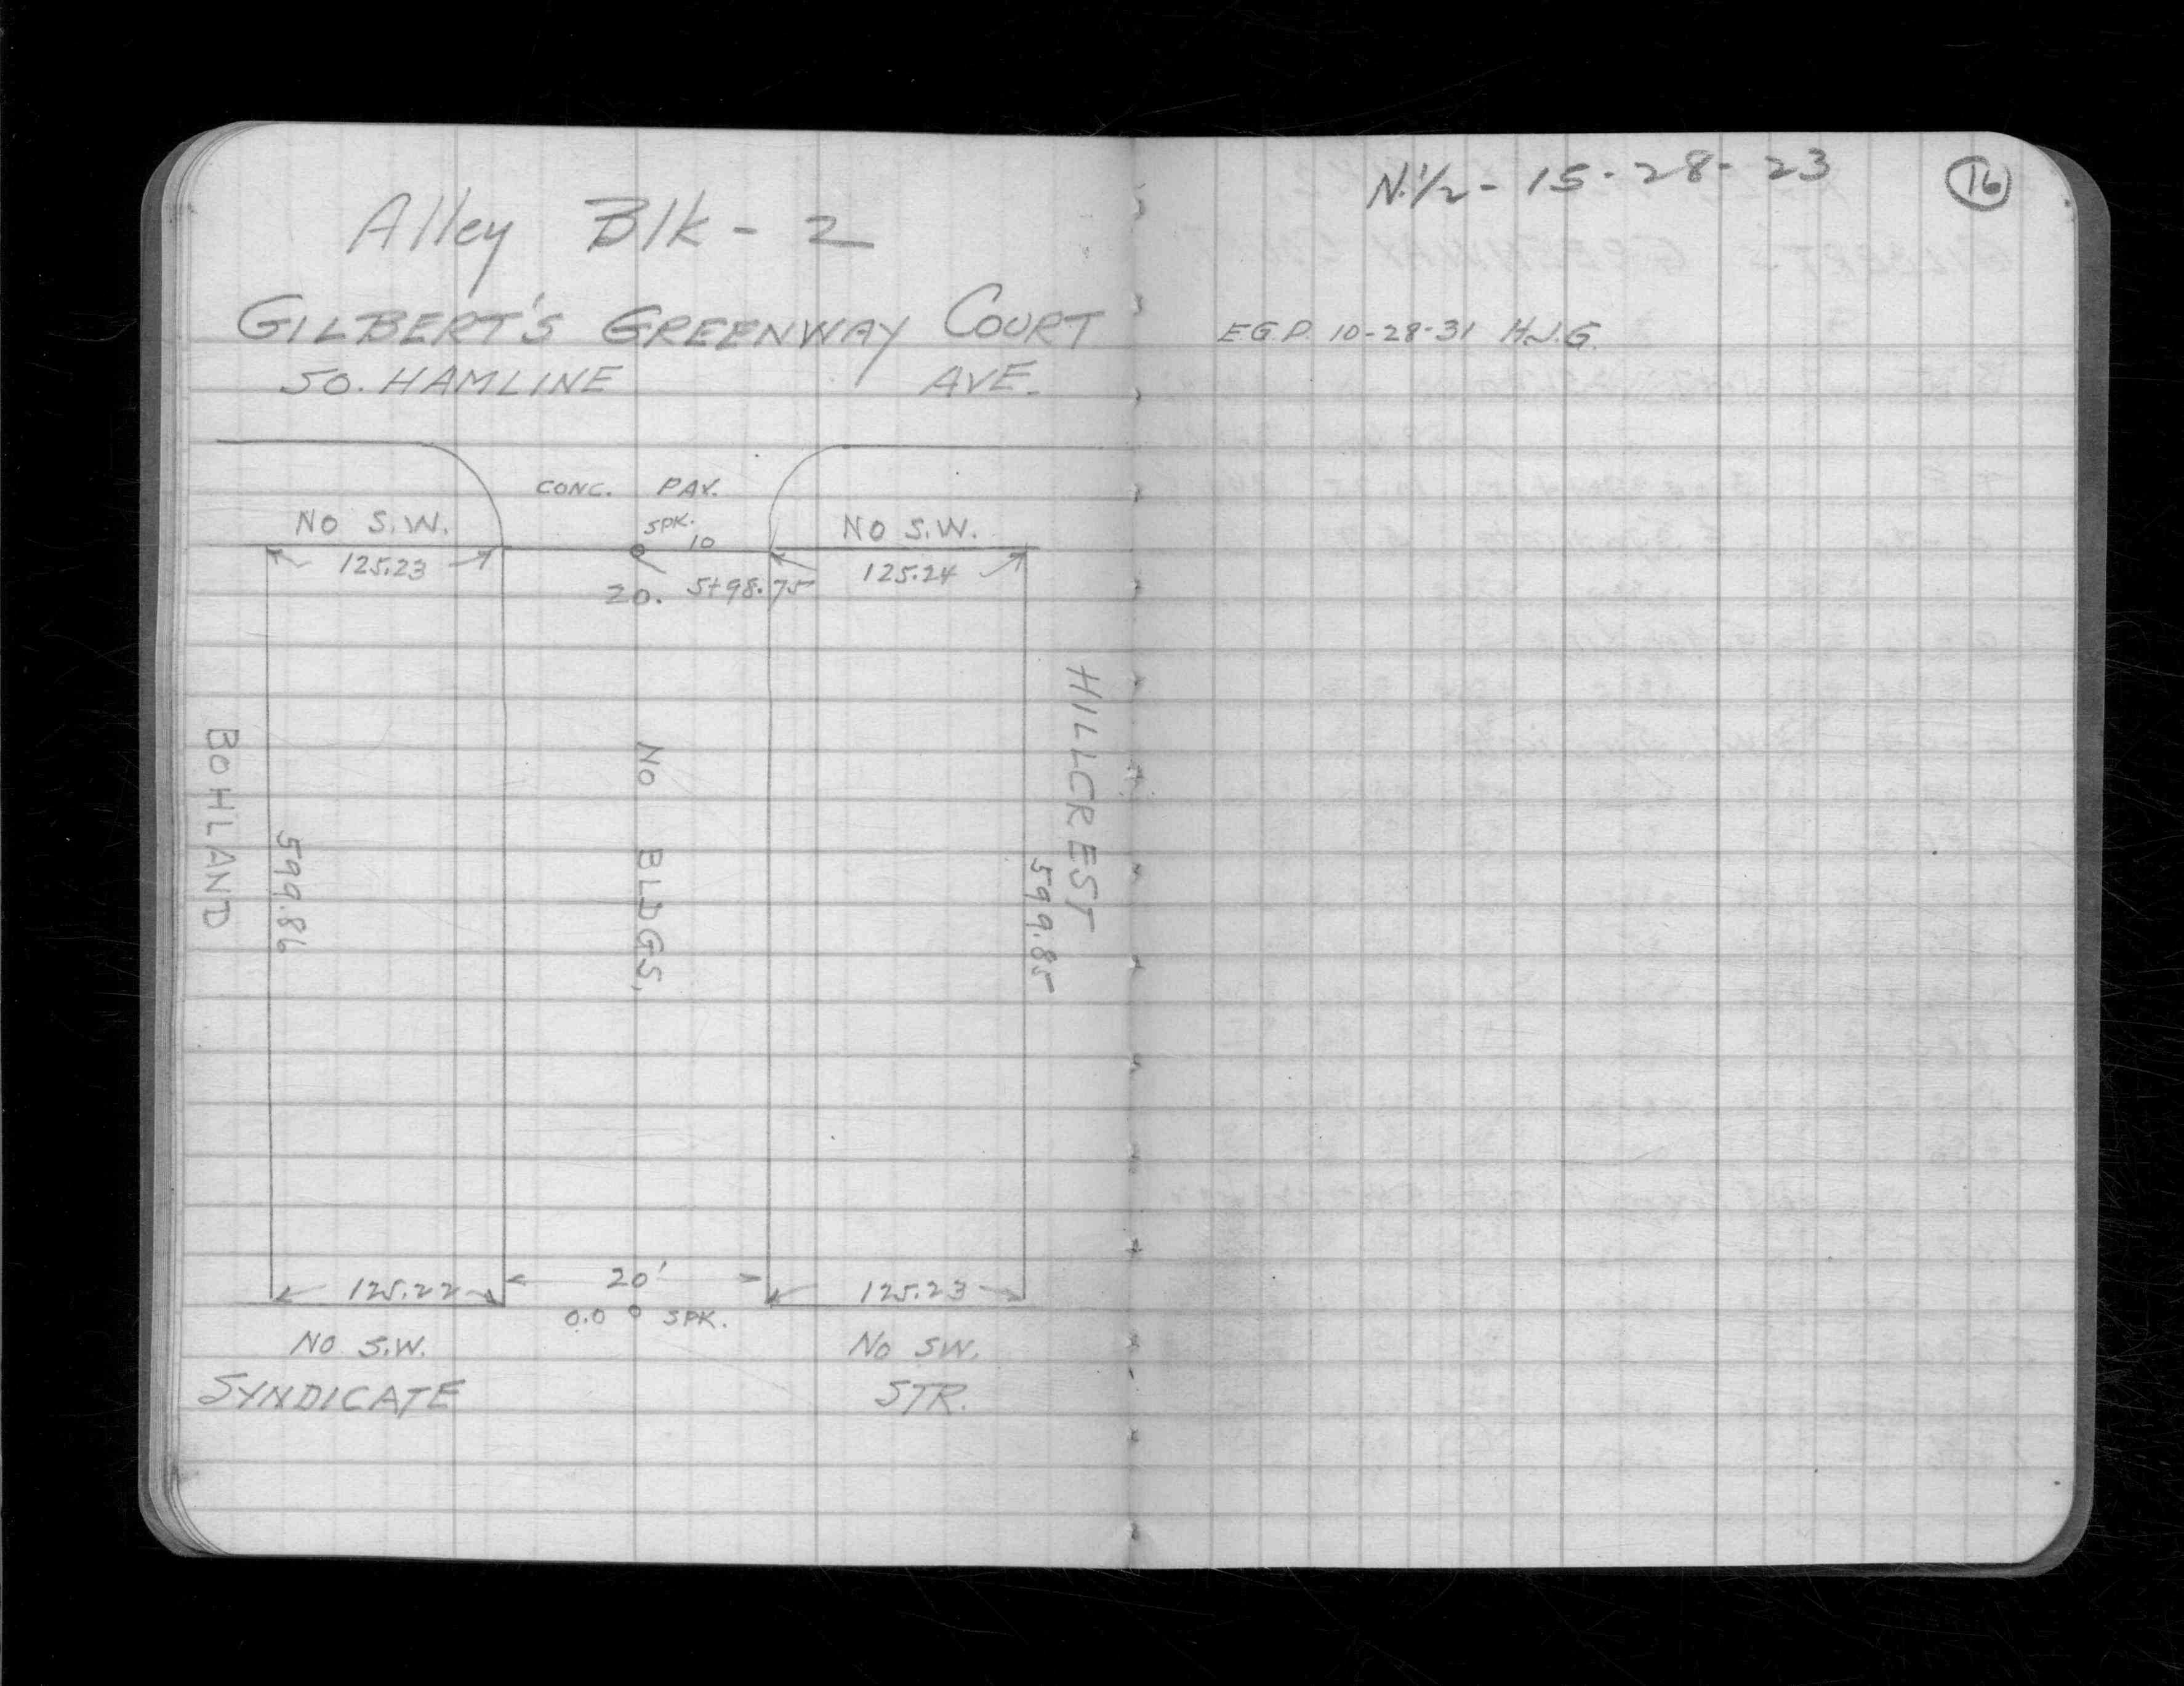 Alley Blk - 2
GILBERT'S GREENWAY COURT
SO. HAMLINE AVE.
CONC. PAV.
NO S.W. SPK. NO S.W.
10
125.23 125.24
20. 5+98.75
HILLCREST
BOHLAND
NO BLDGS,
599.86
599.85
125.22 20' 125.23
0.0 SPK.
NO S.W. NO SW.
SYNDICATE STR.
N.1/2 - 15 - 28 - 23 16
E.G.P. 10-28-31 H.J.G.